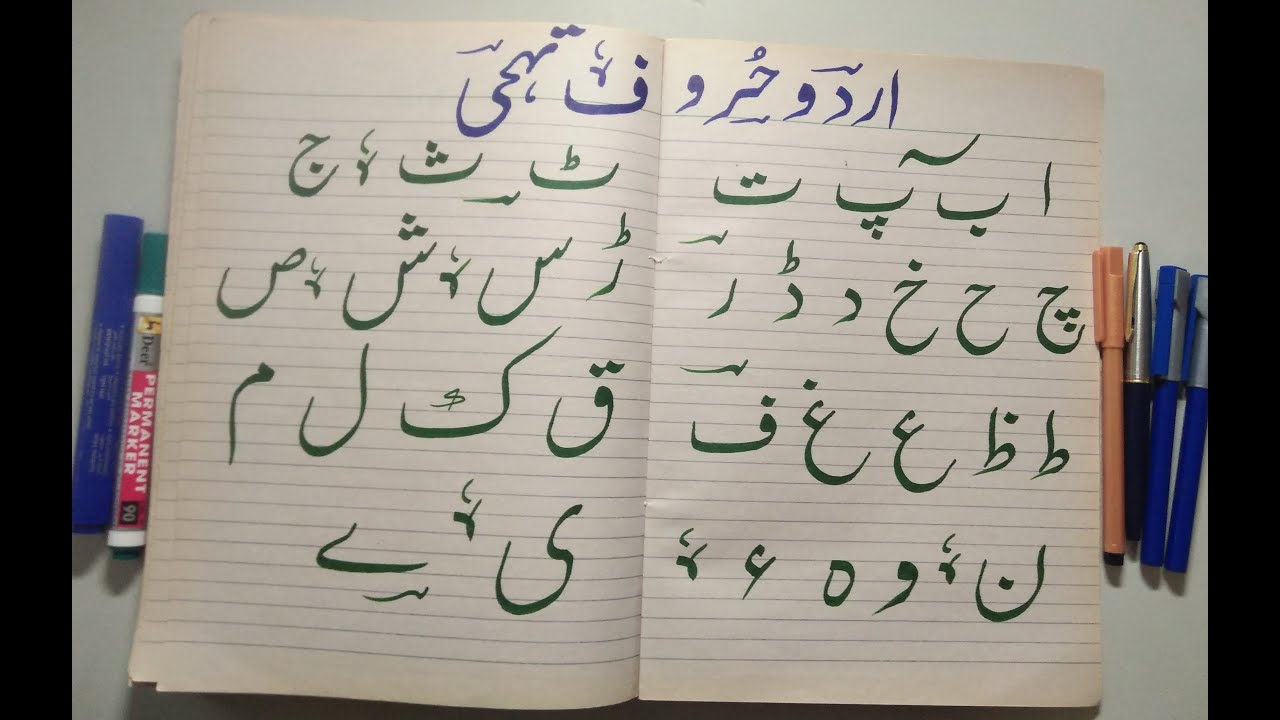 اردو حُروف تہجی
ا ب پ ت ٹ ث ج
چ ح خ د ڈ ر ڑ س ش ص
ط ظ ع غ ف ق ک ل م
ن و ہ ء ی ے
Deer
PERMANENT
MARKER
90